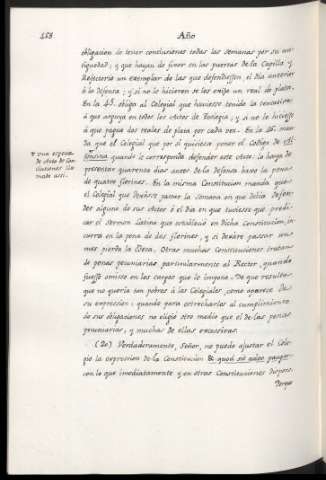 458
Año
obligacion de tener conclusiones todas las semanas por su an-
tiguedad; y que hayan de poner en las puertas de la Capilla y
Refectorio un exemplar de las que defendiessen, el dia anterior
à la defensa; y si no lo hicieren se les exija un real de plata.
En la 45. obliga al Colegial que huviesse tenido la
à que arguya en todos los Actos de Teologia, y si no lo hiciesse
à que pague dos reales de plata por cada vez. En la 46. man-
da que el Colegial que por si quisiesse poner el Codigo de
quando le corresponda defender este Acto, le haya de
presentar quarenta dias antes de la defensa baxo la pena
de quatro florines. En la misma Constitucion manda que
el Colegial que dexasse passar la semana en que debia defen-
der alguno de sus Actos ò el dia en que tuviesse que predi-
car el Sermon Latino que establecio en dicha Constitucion, in-
curra en la pena de dos florines, y si dexare passar un
mes pierda la Beca. Otras muchas Constituciones tratan
de penas pecuniarias particularmente al Rector, quando
fuesse omisso en los cargos que le impone. De que resulta
que no queria tan pobres à los Colegiales, como aparece de
su expression: quando para estrecharlos al cumplimiento
de sus obligaciones no eligio otro medio que el de las penas
pecuniarias, y muchas de ellas excessivas.
(20) Verdaderamente, Señor, no puede ajustar el Cole-
gio la expression de la Constitucion 8
con lo que inmediatamente y en otras Constituciones dispone.
Porque
una especie
de Acto de Con-
clusiones lla-
mado assi.